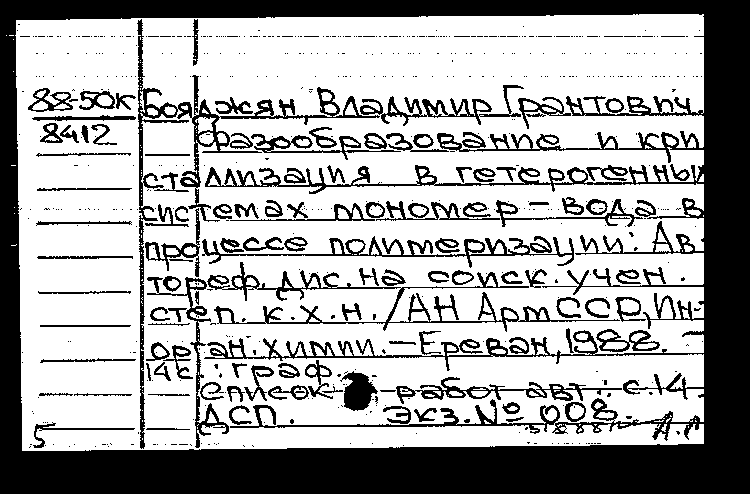 88-50к Бояджян, Владимир Грантович.
8412 Фазообразование и кри
сталлизация в гетерогенных
системах мономер – вода в
процессе полимеризации: Ав-
тореф. дис. на соиск. учен.
степ. к.х.н. /АН АрмССР, Ин-т
орган. химии. – Ереван, 1988. –
14 с. : граф.
Список работ авт.: с. 14.
ДСП. Экз. № 008.
5